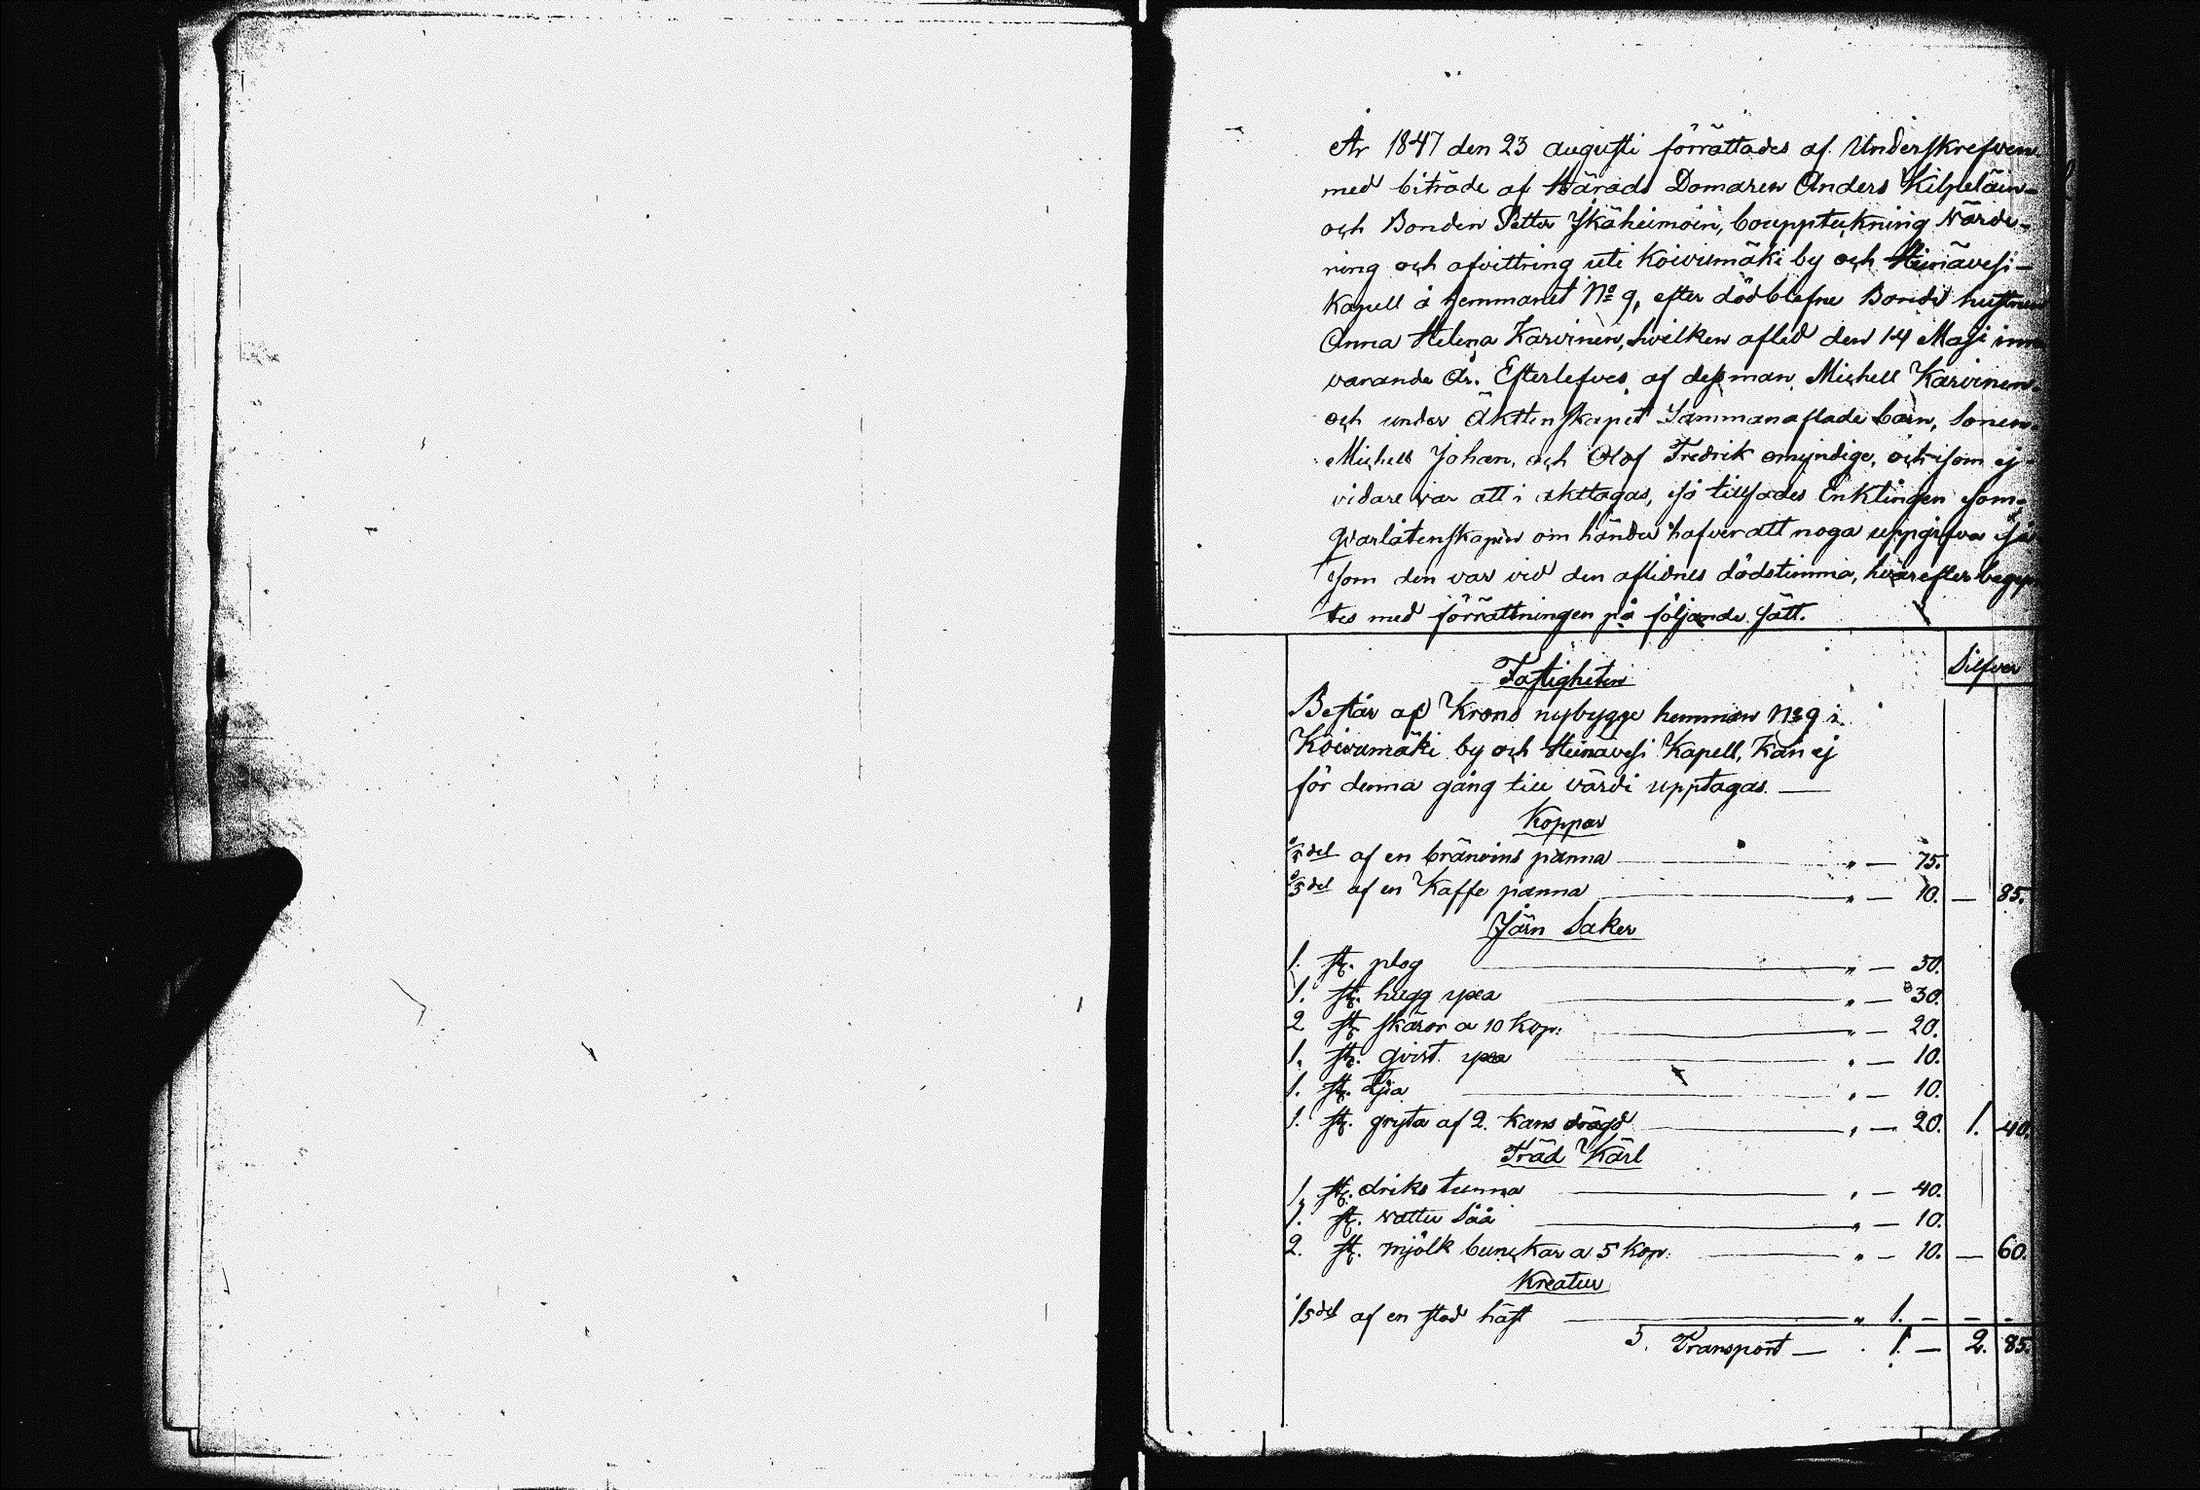 År 1847 den 23 augusti förrättades af Underskrefven
med biträde af Härads Domaren Anders Kilpeläin-
och Bonden Petter Ikäheimoin, bouppteckning Värde-
ring och afvittring uti Koivumäki by och Heinävesi-
Kapell å hemmanet No 9, efter dödblefne Bonde hustrun
Anna Helena Karvinen, hvilken afled den 14 Maji inne
varande År. Efterlefves af dess man Michell Karvinen-
och under Äkttenskapet Sammanaflade barn, Sonen-
Michell Johan, och Olof Fredrik omyndige, och som ej
vidare var att i akttagas, så tillsades Enklingen som-
qvarlåtenskapen om händer hafver att noga uppgifva så
som den var vid den aflidnes dödstimma, hvarefter begyn
tes med förrättningen på följande sätt.
Silfver
Fastigheten
Består af Krono nybygge hemman No 9 i
Koivumäki by och Heinävesi Kapell, Kan ej
för denna gång till värdi upptagas. —
Koppar
1/5 del af en bränvins panna — " — 75.
1/5 del af en Kaffe panna — " — 10. — 85.
Järn Saker
1. st. plog — " — 50.
1. st. hugg yxa — " — 30.
2 st. skäror a 10 Kop: — " — 20.
1. st. qvist yxa — " — 10.
1. st. Lia — " — 10.
1. st. gryta af 2. Kans drägd — " — 20. 1. 40.
Träd Kärl
1. st. driks tunna — " — 40.
1. st. vattu Såå — " — 10.
2. st. mjölk bunckar a 5 Kop: — " — 10. — 60.
Kreatur
1/5 del af en stod häst — " 1. — — -
5. Transport — . 1. — 2. 85.